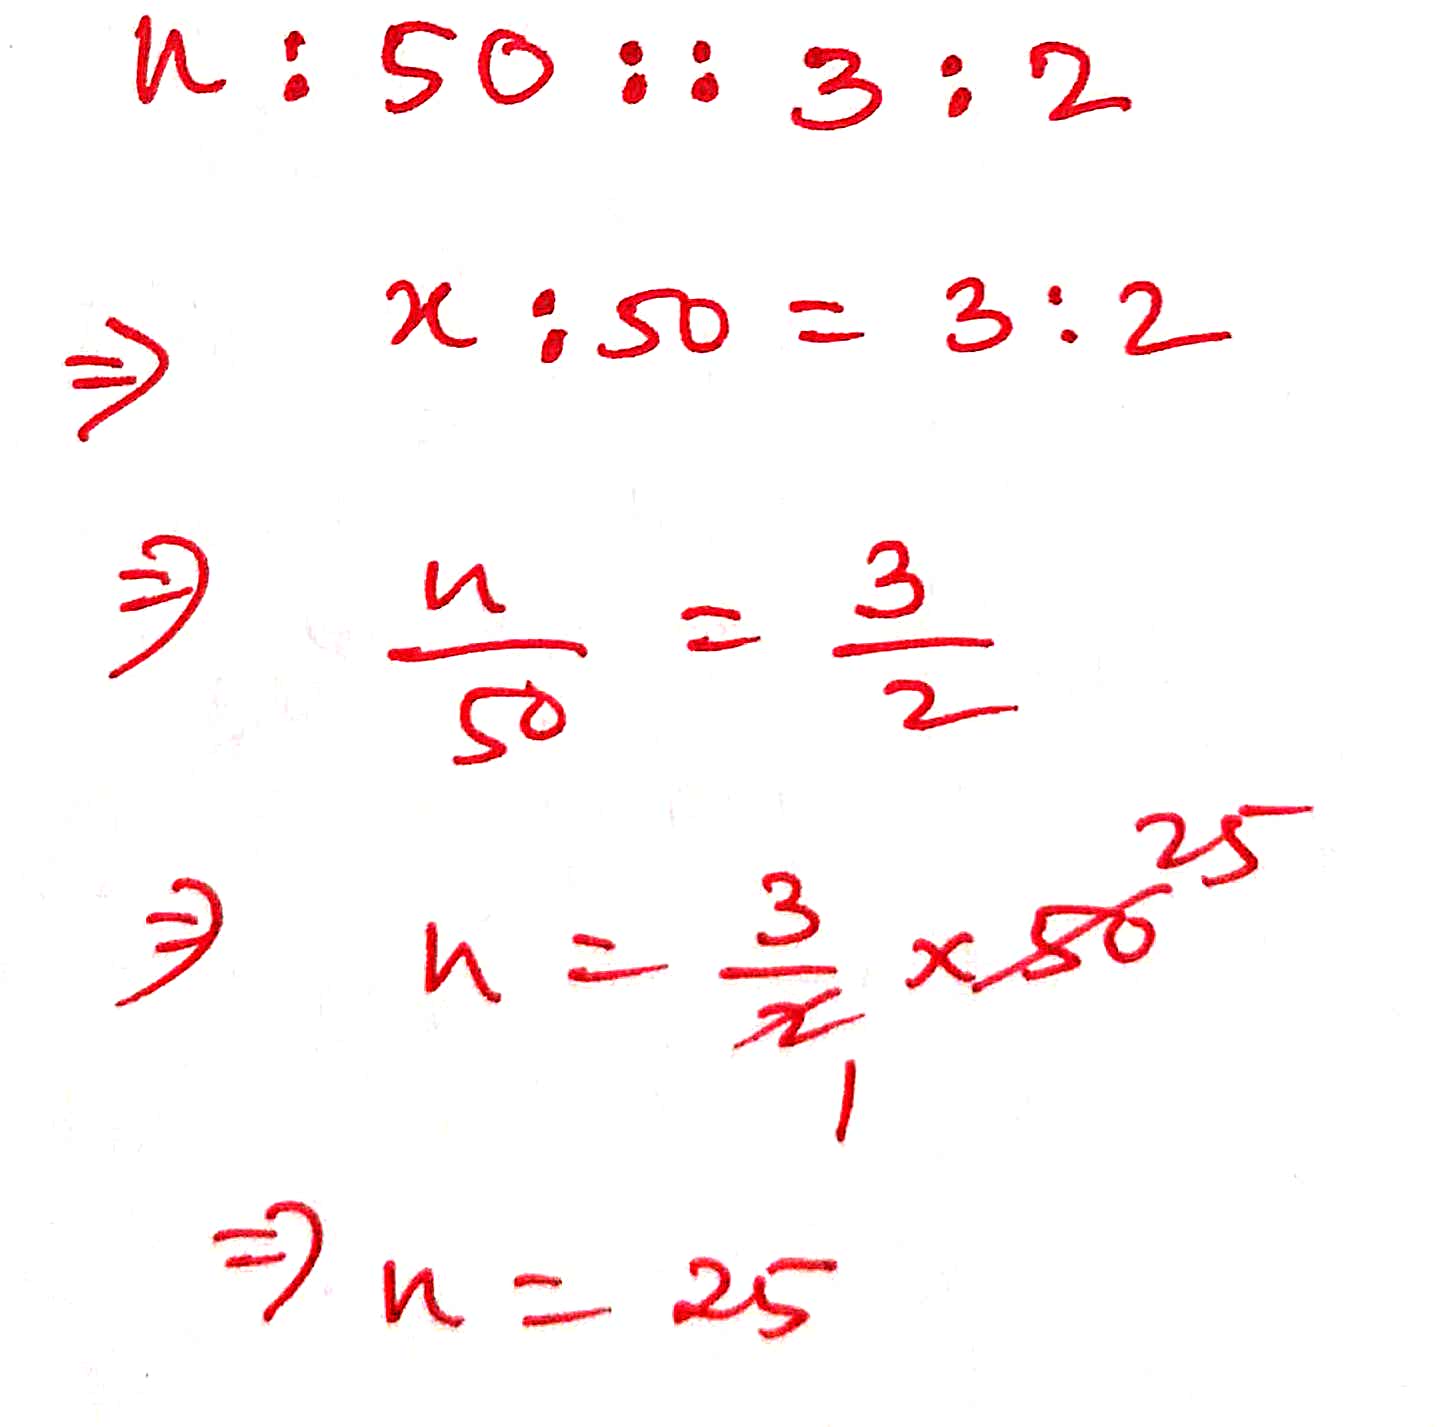 x : 50 :: 3 : 2
⇒ x : 50 = 3 : 2
⇒ x/50 = 3/2
⇒ x = 3/2 × 50 25
1
⇒ x = 25